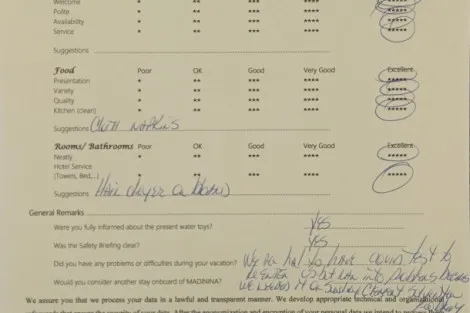 Welcome * ** *** **** *****
Polite * ** *** **** *****
Availability * ** *** **** *****
Service * ** *** **** *****
Suggestions
Food Poor OK Good Very Good Excellent
Presentation * ** *** **** *****
Variety * ** *** **** *****
Quality * ** *** **** *****
Kitchen (clean) * ** *** **** *****
Suggestions Cloth NAPKINS
Rooms/ Bathrooms Poor OK Good Very Good Excellent
Neatly * ** *** **** *****
Hotel Service
(Towels, Bed,..) * ** *** **** *****
Suggestions Hair dryer
General Remarks
Were you fully informed about the present water toys? YES
Was the Safety Briefing clear? YES
Did you have any problems or difficulties during your vacation? We all had to have covid test to
Would you consider another stay onboard of MADININA? we needed it on Sunday
We assure you that we process your data in a lawful and transparent manner. We develop appropriate technical and organizational